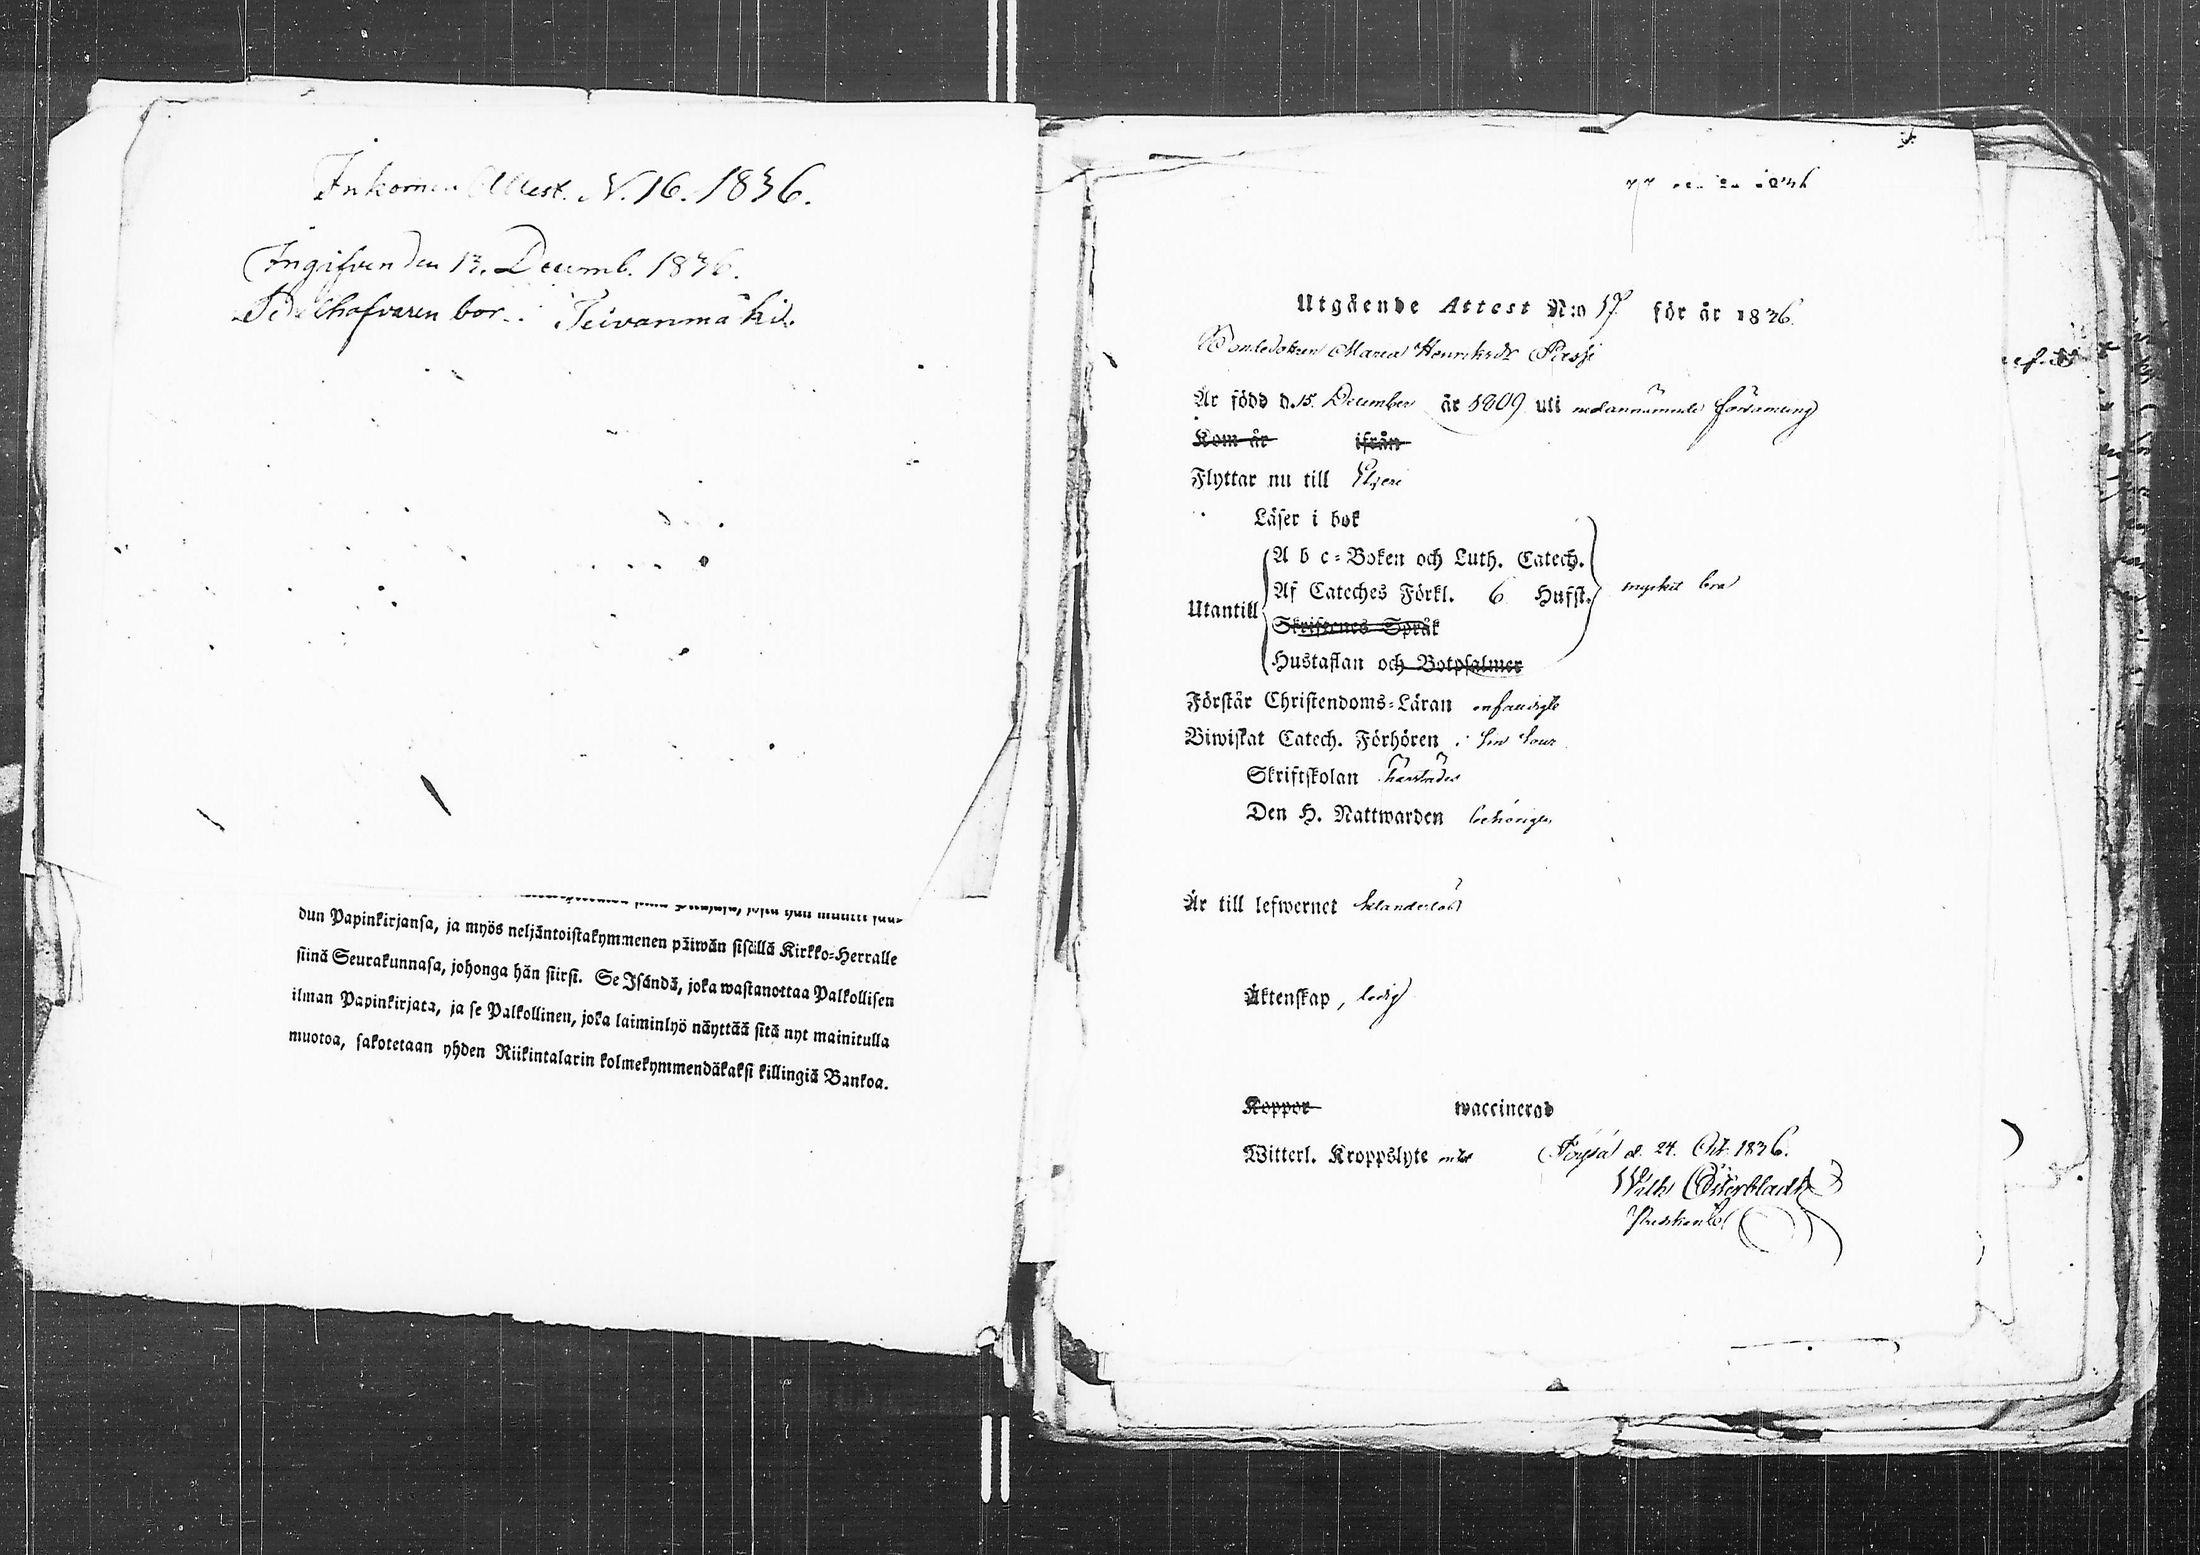 Inkommen Attest. N. 16. 1836.
Ingifven den 13. Decemb. 1836.
bor i Teivanmäki.
dun Papinkirjansa, ja myös neljäntoistakymmenen päiwän sisällä Kirkko-Herralle
siinä Seurakunnasa, johonga hän siirsi. Se Isändä, joka wastanottaa Palkollisen
ilman Papinkirjata, ja se Palkollinen, joka laiminlyö näyttää sitä nyt mainitulla
muotoa, sakotetaan yhden Riikintalarin kolmekymmendäkaksi killingiä Bankoa.
Utgående Attest N:o 17 för år 1836.
Bondedottren Maria Henriksdr
Är född d. 15. December år 1809 uti nedannämnde församling
Kom år ifrån
Flyttar nu till
Läser i bok
A b c-Boken och Luth. Catech.
Af Cateches Förkl. 6 Hufst. mycket bra
Utantill
Skriftenes Språk
Hustaflan och Botpsalmer
Förstår Christendoms-Läran enfaldigt
Biwistat Catech. Förhören
Skriftskolan
Den H. Nattwarden behörigen
Är till lefwernet klanderlös
Äktenskap, ledig
Koppor waccinerad
Witterl. Kroppslyte intet d. 24. Oct. 1836.
Wilh Österbladh